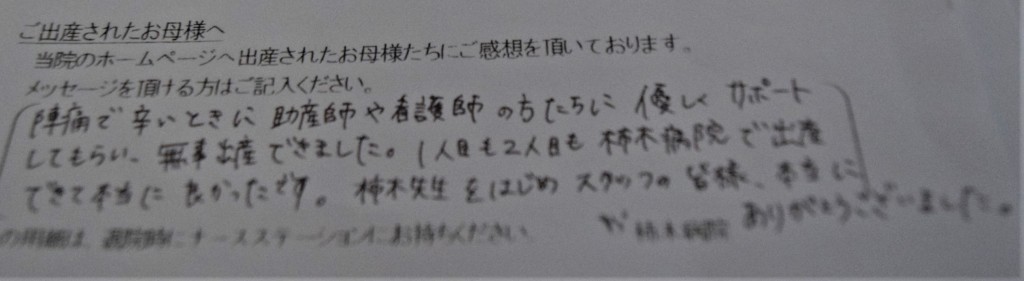 ご出産されたお母様へ
当院のホームページへ出産されたお母様たちにご感想を頂いております。
メッセージを頂ける方はご記入ください。
陣痛で辛いときに 助産師や看護師 の方たちに 優しく サポート
してもらい、無事出産できました。1人目も2人目も 柿木病院で出産
できて本当に 良かったです。柿木先生をはじめ スタッフの 皆様、本当に
ありがとうございました。
の用紙は、退院時にナースステーションにお持ちください
柿木病院